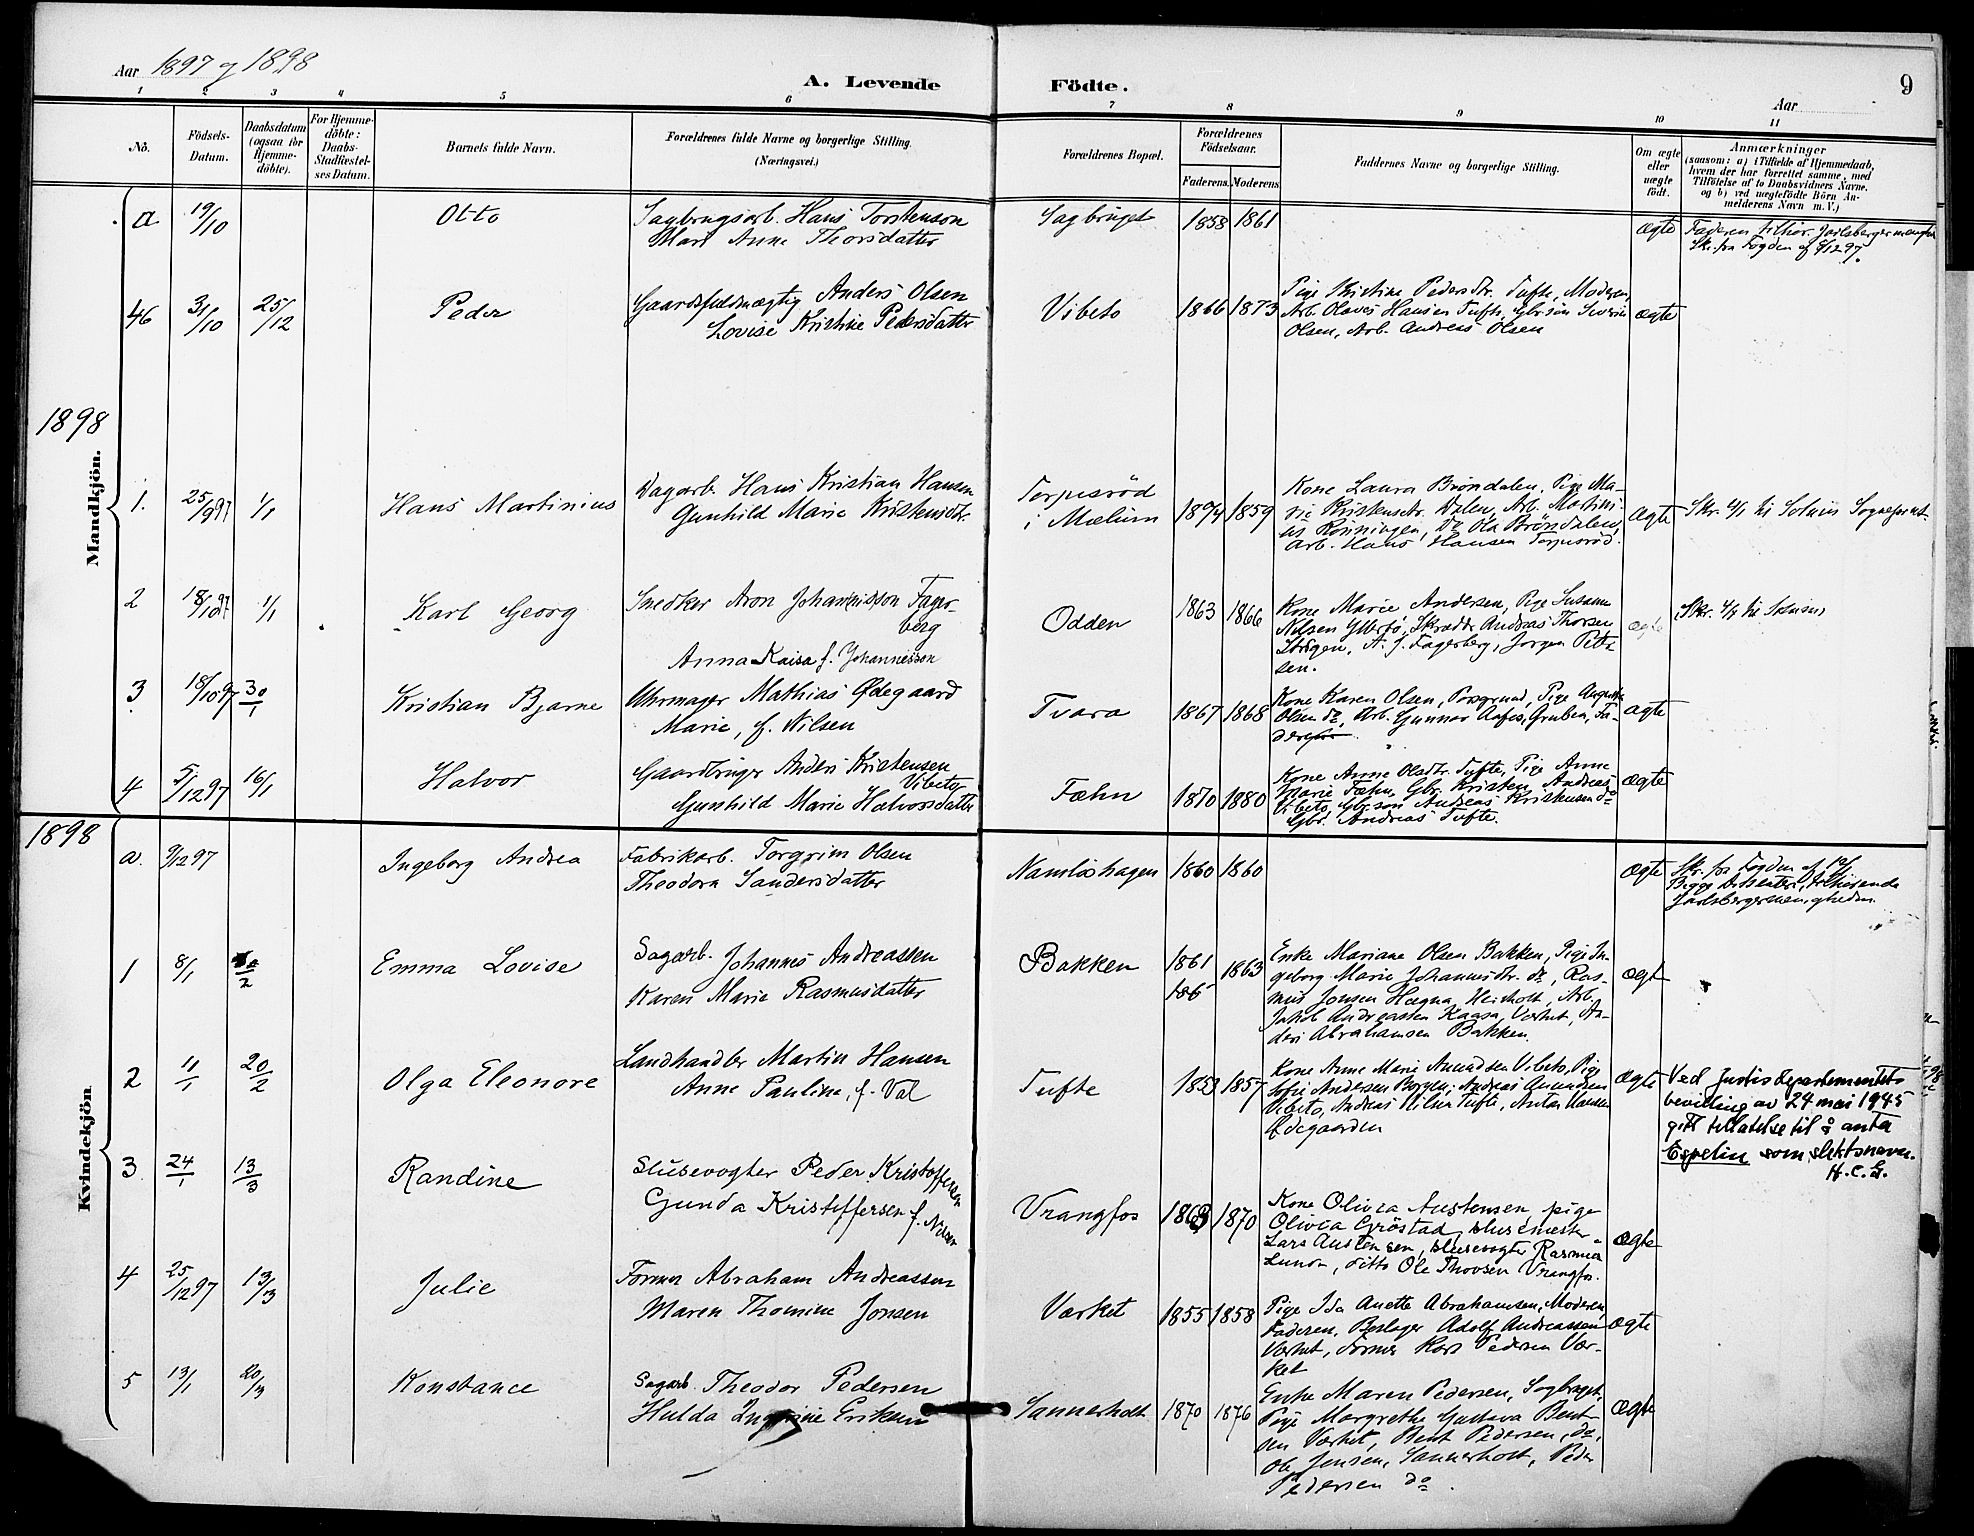 Aar 1897 og 1898
A. Levende Födte.
9
Aar
1 2 3 4 5 6 7 8 9 10 11
No.
Födsels-Datum.
Daabsdatum (ogsaa for Hjemme-döbte).
For Hjemme-döbte: Daabs-Stadfæstel-ses Datum.
Barnets fulde Navn.
Forældrenes fulde Navne og borgerlige Stilling. (Næringsvei.)
Forældrenes Bopæl.
Forældrenes Födselsaar.
Faderens. Moderens.
Faddernes Navne og borgerlige Stilling.
Om ægte eller uægte födt.
Anmærkninger
(saasom: a) i Tilfælde af Hjemmedaab, hvem der har forrettet samme, med Tilföielse af to Daabsvidners Navne. og b) ved uægtefödte Börn An-melderens Navn m. V.)
a 19/10 Otto
Sagbrugsarb. Hans Torstenson
Mari Anne Thorsdatter
Sagbruget 1858 1861 ægte
Faderen tilhör. Jarlsbergermenigh
Skr. fra Fogden af 9/12 97.
46 31/10 25/12 Peder
Gaardsfuldmægtig Anders Olsen
Lovise Kristine Pedersdatter
Vibeto 1866 1873
Pige Kristine Pedersdtr. Tufte, Moderen,
Arb. Olaves Hansen Tufte, Gbr. søn Severin
Olsen, Arb. Andreas Olsen
ægte
1898
Mandkjön.
1. 25/9 97 1/1 Hans Martinius
Dagarb. Hans Kristian Hansen
Gunhild Marie Kristensdtr.
Torpusröd
i Mælum
1894 1859
Kone Laura Bröndalen, Pige Ma-
rie Kristensdtr. Dalen, Arb. Martini-
us Rönningen, Do Ola Bröndalen,
Arb. Hans Hansen Torpusröd.
ægte
Skr. 4/1 til Solum Sogneprest.
2 18/10 97 1/1 Karl Georg
Snedker Aron Johannisson Fager-
berg
Anna Kaisa f. Johannisson
Odden 1863 1866
Kone Marie Andersen, Pige Susanne
Nilsen Ytterbö, Skrædder Andreas Thorsen
Stigen, A. J. Fagerberg, Jörgen Peter-
sen.
ægte
Skr. 4/1 til Solum
3 18/10 97 30/1 Kristian Bjarne
Uhrmager Mathias Ødegaard
Marie, f. Nilsen
Tvara 1867 1868
Kone Karen Olsen, Porsgrund, Pige Augusta
Olsen do, Arb. Gunnar Aafos, Gruben, Fa-
deren.
ægte
4 5/12 97 16/1 Halvor
Gaardbruger Anders Kristensen
Vibeto
Gunhild Marie Halvorsdatter
Fæhn 1870 1880
Kone Anne Olsdtr. Tufte, Pige Anne
Marie Fæhn, Gbr. Kristen Andreas
Vibeto, Gbr. søn Andreas Kristensen do
Gbr. Andreas Tufte.
ægte
1898
Kvindekjön
a. 9/12 97 Ingeborg Andrea
Fabrikarb. Torgrim Olsen
Theodora Sandersdatter
Namlöshagen 1860 1860 ægte
Skr. fra Fogden af 12/1
Begge Dissentere, tilhörende
Jarlsbergermenigheden.
1 8/1 2 Emma Lovise
Sagarb. Johannes Andreassen
Karen Marie Rasmusdatter
Bakken 1861 186 1863
Enke Mariane Olsen Bakken, Pige In-
geborg Marie Johannesdtr. do, Ras-
mus Jonsen Hægna, Heisholt, Arb.
Jakob Andreassen Kaasa, Værket, An-
ders Abrahamsen Bakken.
ægte
2 11/1 20/2 Olga Eleonore
Landhandler Martin Hansen
Anne Pauline, f. Val
Tufte 1853 1857
Kone Anne Marie Amundsen Vibeto, Pige
Sofie Andersen Borgen, Andreas Amundsen
Vibeto, Andreas Nilsen Tufte, Anton Hansen
Ødegaarden
ægte
Ved Justisdepartementets
bevilling av 24 mai 1945
gitt tillatelse til å anta
Espelin som slektsnavn.
H. C. G.
3 24/1 13/3 Randine
Slusevogter Peder Kristoffersen
Gunda Kristoffersen f. Nilsen
Vrangfos 1863 1870
Kone Olivia Austensen, pige
Olivia Gröstad, slusemester
Lars Austensen, slusevogter Rasmus
Lunde, ditto Ole Thovsen Vrangfos.
ægte
4 25/12 97 13/3 Julie
Former Abraham Andreassen
Maren Thomine Jonsen
Værket 1855 1858
Pige Ida Anette Abrahamsen, Moderen,
Faderen, Beslager Adolf Andreassen
Værket, Former Hans Pedersen Vær-
ket
ægte
5 13/1 20/3 Konstance
Sagarb. Theodor Pedersen
Hulda Ingrine Eriksen
Sannerholt 1870 1876
Enke Maren Pedersen, Sagbruget,
Pige Margrethe Gustava Bent-
sen Værket, Bent Pedersen, do,
Ole Jensen, Sannerholt, Peder
Pedersen do.
ægte